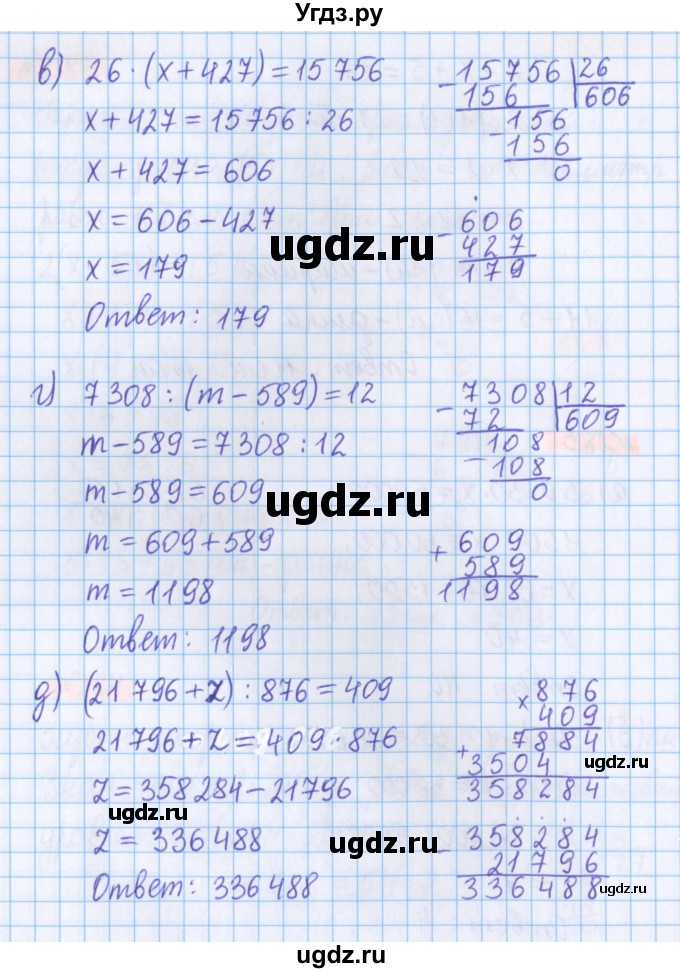 Угдз.ру
в) 26 · (x + 427) = 15 756
x + 427 = 15 756 : 26
x + 427 = 606
x = 606 – 427
x = 179
Ответ: 179
– 15756 | 26
156 606
– 156
156
0
– 606
427
179
ugdz.ru
г) 7 308 : (m – 589) = 12
m – 589 = 7 308 : 12
m – 589 = 609
m = 609 + 589
m = 1198
Ответ: 1198
– 7308 | 12
72 609
– 108
108
0
+ 609
589
1198
ugdz.ru
ugdz.ru
д) (21 796 + z) : 876 = 409
21 796 + z = 409 · 876
z = 358 284 – 21796
z = 336 488
Ответ: 336 488
× 876
409
+ 7884
3504
358284
– 358284
21796
336488
ugdz.ru
ugdz.ru
ugdz.ru
ugdz.ru